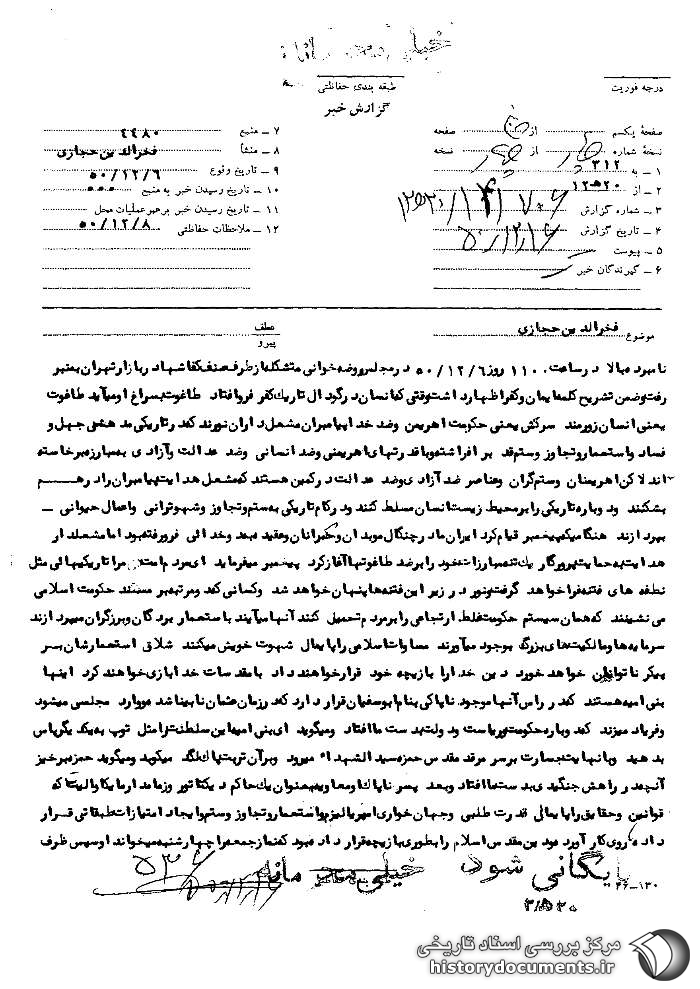 خیلی محرمانه
درجه فوریت
طبقه بندی حفاظتی
گزارش خبر
صفحهٔ یکم از صفحه
نسخهٔ شماره از نسخه
۱ ـ به ۳۱۲
۲ ـ از ۱۲۵۲۰
۳ ـ شماره گزارش
۴ ـ تاریخ گزارش
۵ ـ پیوست
۶ ـ گیرندگان خبر
۷ ـ منبع ۴۴۸۰
۸ ـ منشأ فخرالدین حجازی
۹ ـ تاریخ وقوع ۵۰/۱۲/۶
۱۰ ـ تاریخ رسیدن خبر به منبع ۵۰۰
۱۱ ـ تاریخ رسیدن خبر برهبر عملیات محل
۱۲ ـ ملاحظات حفاظتی ۵۰/۱۲/۸
موضوع فخرالدین حجازی
عطف
پیرو
نامبرده بالا در ساعت ۱۱۰۰ روز ۵۰/۱۲/۶ در مجلس روضه خوانی متشکله از طرف صنف کفاشها در بازار تهران به منبر
رفت و ضمن تشریح کلمه ایمان و کفر اظهار داشت وقتی که انسان در گودال تاریک کفر فرو افتاد طاغوت بسراغ او میآید طاغوت
یعنی انسان زورمند سرکش یعنی حکومت اهریمن و ضد خدا پیامبران مشعل داران نورند که در تاریکی مدهش جهل و
فساد و استعمار و تجاوز و ستم قد بر افراشته و با قدرتهای اهریمنی و ضد انسانی و ضد عدالت و آزادی به مبارزه برخاسته
اند لاکن اهریمنان و ستم گران و عناصر ضد آزادی و ضد عدالت در کمین هستند که مشعل هدایت پیامبران را در هم
بشکنند و دوباره تاریکی را بر محیط زیست انسان مسلط کنند و در کام تاریکی به ستم و تجاوز و شهوترانی و اعمال حیوانی ـ
بپردازند هنگامیکه پیغمبر قیام کرد ایران ما در چنگال موبدان و حکمرانان و عقیده به دو خدائی فرو رفته بود اما مشعلدار
هدایت به حمایت پروردگار یک تنه مبارزات خود را بر ضد طاغوتها آغاز کرد پیغمبر میفرماید ای مردم امتان مرا تاریکیهائی مثل
نطفه های فتنه فرا خواهد گرفت و نور در زیر این فتنه ها پنهان خواهد شد و کسانی که در مرتبه بر مسند حکومت اسلامی
می نشینند که همان سیستم حکومت غلط ارتجاعی را بر مردم تحمیل کنند آنها میآیند با استعمار بردگان و برزگران میپردازند
سرمایه ها و مالکیت های بزرگ بوجود میآورند مساوات اسلامی را پایمال شهوت خویش میکنند شلاق استعمارشان بسر
پیکر ناتوانان خواهد خورد دین خدا را بازیچه خود قرار خواهند داد با مقدسات خدا بازی خواهند کرد اینها
بنی امیه هستند که در راس آنها موجود ناپاکی بنام ابوسفیان قرار دارد که در زمان عثمان نابینا شده و وارد مجلسی میشود
و فریاد میزند که دوباره حکومت و ریاست و دولت بدست ما افتاد و میگوید ای بنی امیه این سلطنت را مثل توپ به یک یگر پاس
بدهید و با نهایت جسارت بر سر مرقد مقدس حمزه سید الشهداء میرود و بر آن تربت پاک لگد میکوبد و میگوید حمزه برخیز
آنچه در راهش جنگیدی بدست ما افتاد و بعد پسر ناپاک او معاویه بعنوان یک حاکم دیکتاتور و زمامدار مایکاوالیست که
قوانین و حقایق را پایمالی قدرت طلبی و جهان خواری امپریالیزم و استعمار و تجاوز و ستم و ایجاد امتیازات طبقاتی قرار
داده روی کار آورد و دین مقدس اسلام را بطوری بازیچه قرار داده بود که نماز جمعه را چهارشنبه میخواند او سپس ظرف
بایگانی شود
خیلی محرمانه
۳/۵۲۰
۴۶-۱۳۰
مرکز بررسی اسناد تاریخی
historydocuments.ir